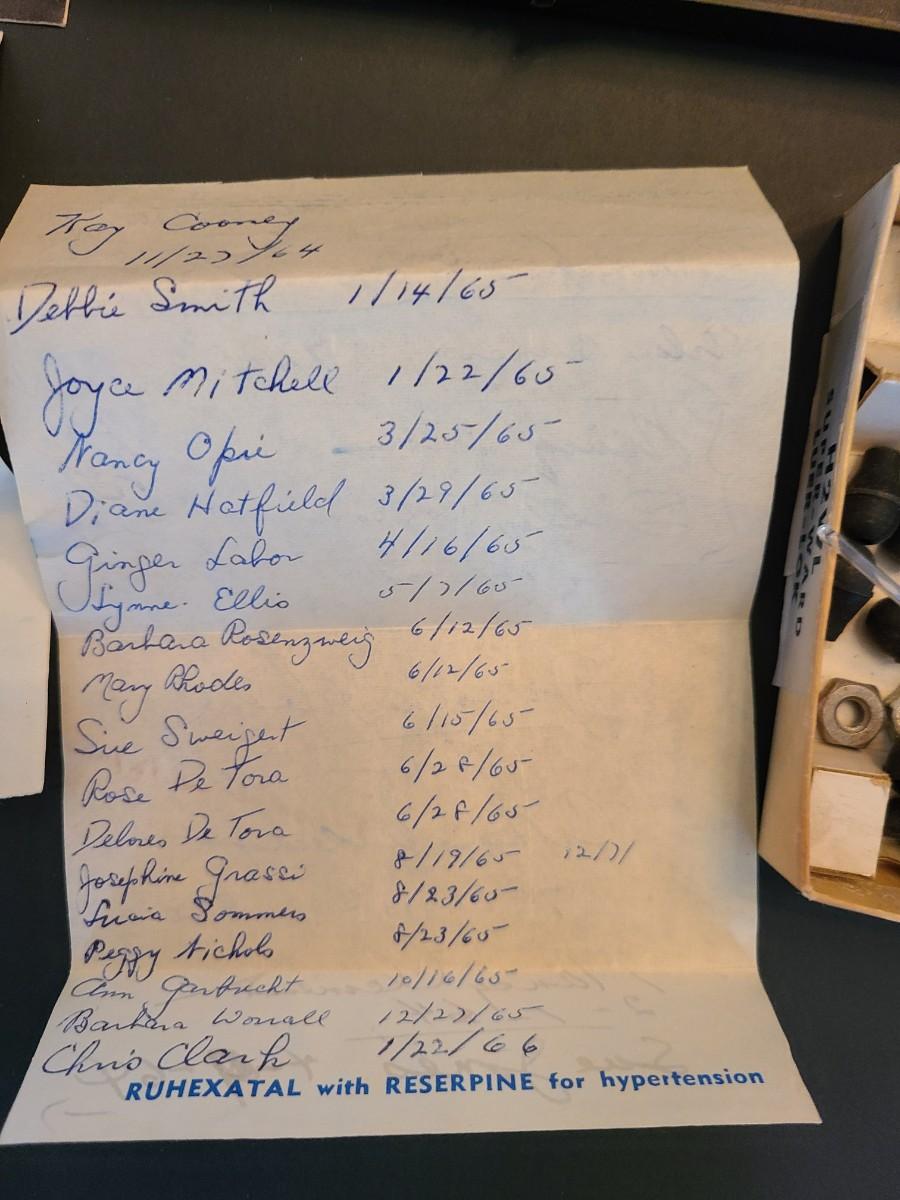 Kay Cooney
11/27/64
Debbie Smith 1/14/65
Joyce Mitchell 1/22/65
Nancy Opie 3/25/65
Diane Hatfield 3/29/65
Ginger Labor 4/16/65
Lynne Ellis 5/7/65
Barbara Rosenzweig 6/12/65
Mary Rhodes 6/12/65
Sue Sweigert 6/15/65
Rose De Tora 6/28/65
Delores De Tora 6/28/65
Josephine Grassi 8/19/65 12/7/
Sommers 8/23/65
Peggy Nichols 8/23/65
Ann 10/16/65
Barbara Worrall 12/27/65
Chris Clark 1/22/66
RUHEXATAL with RESERPINE for hypertension